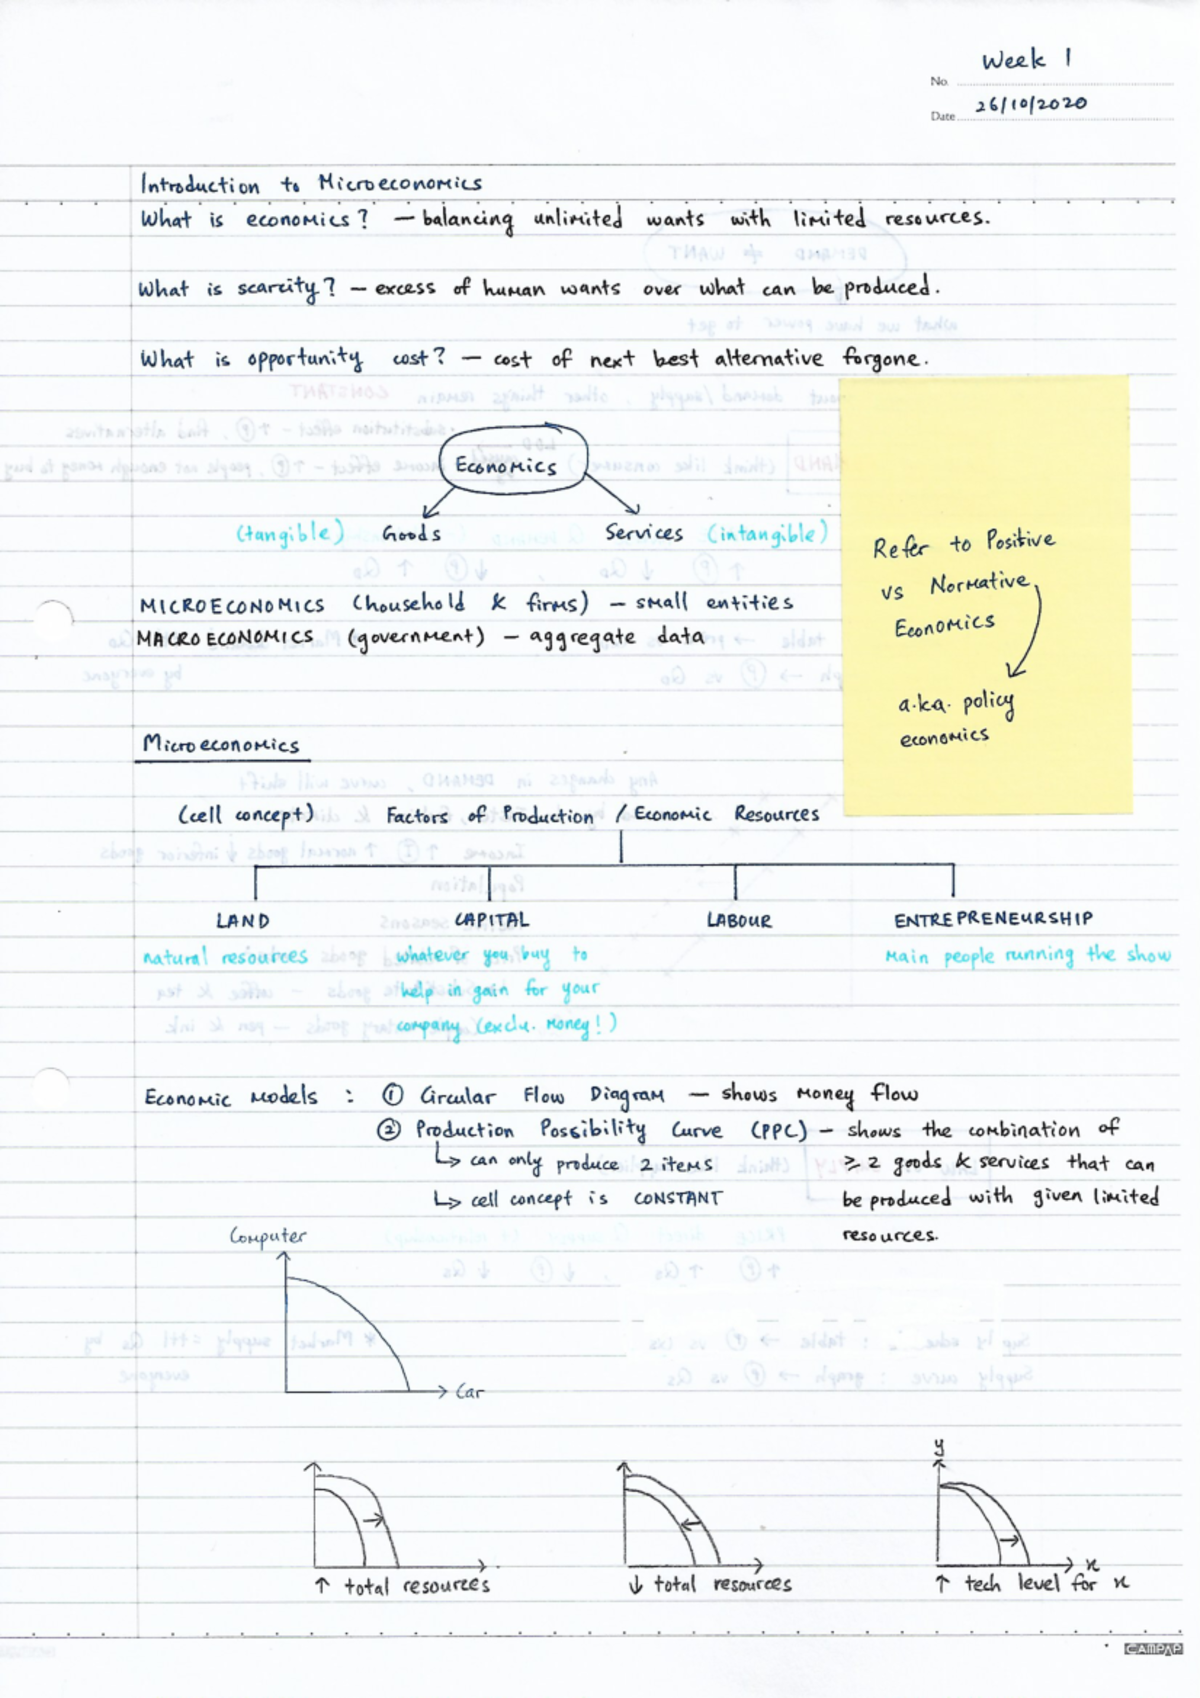 Week 1
No.
26/10/2020
Date
Introduction to Microeconomics
What is economics? — balancing unlimited wants with limited resources.
What is scarcity? — excess of human wants over what can be produced.
What is opportunity cost? — cost of next best alternative forgone.
Economics
(tangible) Goods Services (intangible)
Refer to Positive
vs Normative
Economics
a.k.a. policy
economics
MICROECONOMICS (household & firms) — small entities
MACROECONOMICS (government) — aggregate data
Microeconomics
(cell concept) Factors of Production / Economic Resources
LAND CAPITAL LABOUR ENTREPRENEURSHIP
natural resources
whatever you buy to
help in gain for your
company (exclu. money!)
main people running the show
Economic models : ① Circular Flow Diagram — shows money flow
② Production Possibility Curve (PPC) — shows the combination of
≥ 2 goods & services that can
be produced with given limited
resources.
↳ can only produce 2 items
↳ cell concept is CONSTANT
Computer
Car
↑ total resources
↓ total resources
y
x
↑ tech level for x
CAMPAP